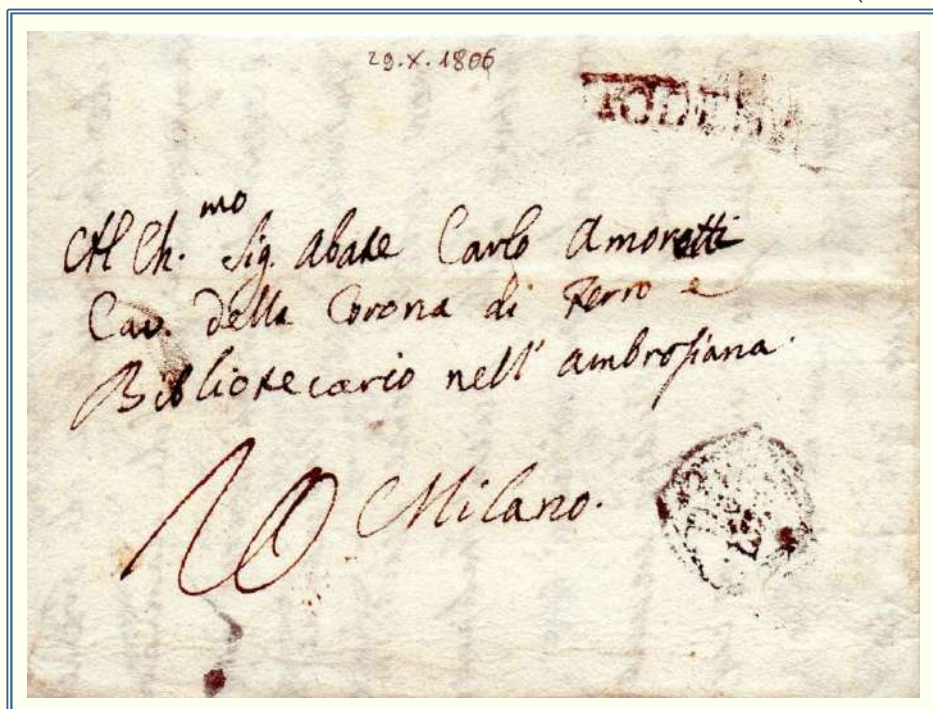 29.X.1806
Al Ch.mo Sig. Abate Carlo Amoretti
Cav. della Corona di Ferro e
Bibliotecario nell' Ambrosiana.
10 Milano.